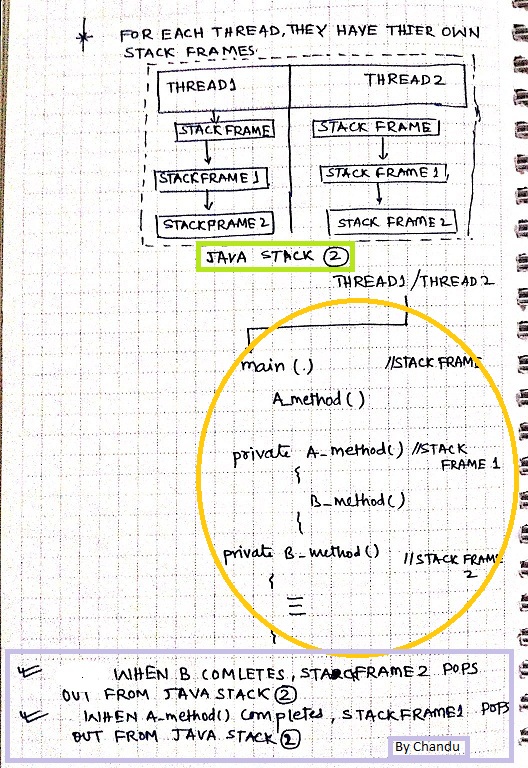 * FOR EACH THREAD, THEY HAVE THIER OWN
STACK FRAMES.
THREAD1 THREAD2
STACKFRAME STACK FRAME
STACKFRAME1 STACK FRAME1
STACKFRAME2 STACK FRAME2
JAVA STACK ②
THREAD1/THREAD2
main(.) //STACK FRAME
A_method()
private A_method() //STACK
FRAME 1
{
B_method()
{
private B_method() //STACK FRAME
2
{
{
WHEN B COMLETES, STACKFRAME2 POPS
OUT FROM JAVA STACK ②
WHEN A_method() Completes, STACKFRAME1 POPS
OUT FROM JAVA STACK ②
By Chandu